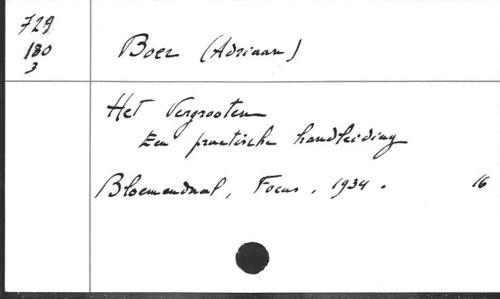 729
180
3
Boer (Adriaan)
Het Vergrooten
Een practische handleiding
Bloemendaal, Focus, 1934.
16